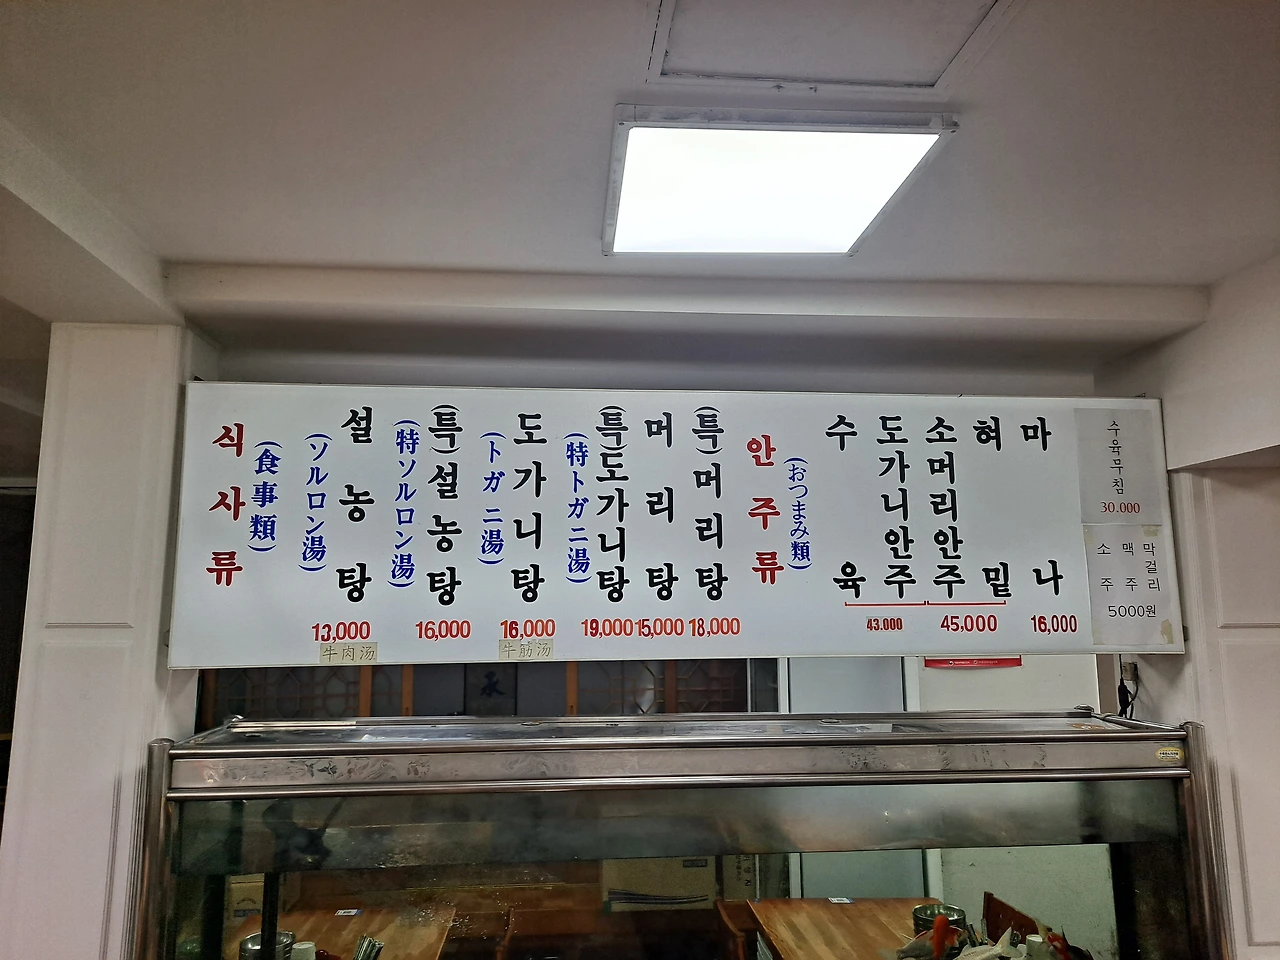 식사류
(食事類)
설농탕
(ソルロン湯)
13,000
牛肉汤
(특)설농탕
(特ソルロン湯)
16,000
도가니탕
(トガニ湯)
16,000
牛筋汤
(특)도가니탕
(特トガニ湯)
19,000
머리탕
15,000
(특)머리탕
18,000
안주류
(おつまみ類)
수육
도가니안주
43.000
소머리안주
혀밑
45,000
마나
16,000
수육무침
30.000
소주
맥주
막걸리
5000원
承